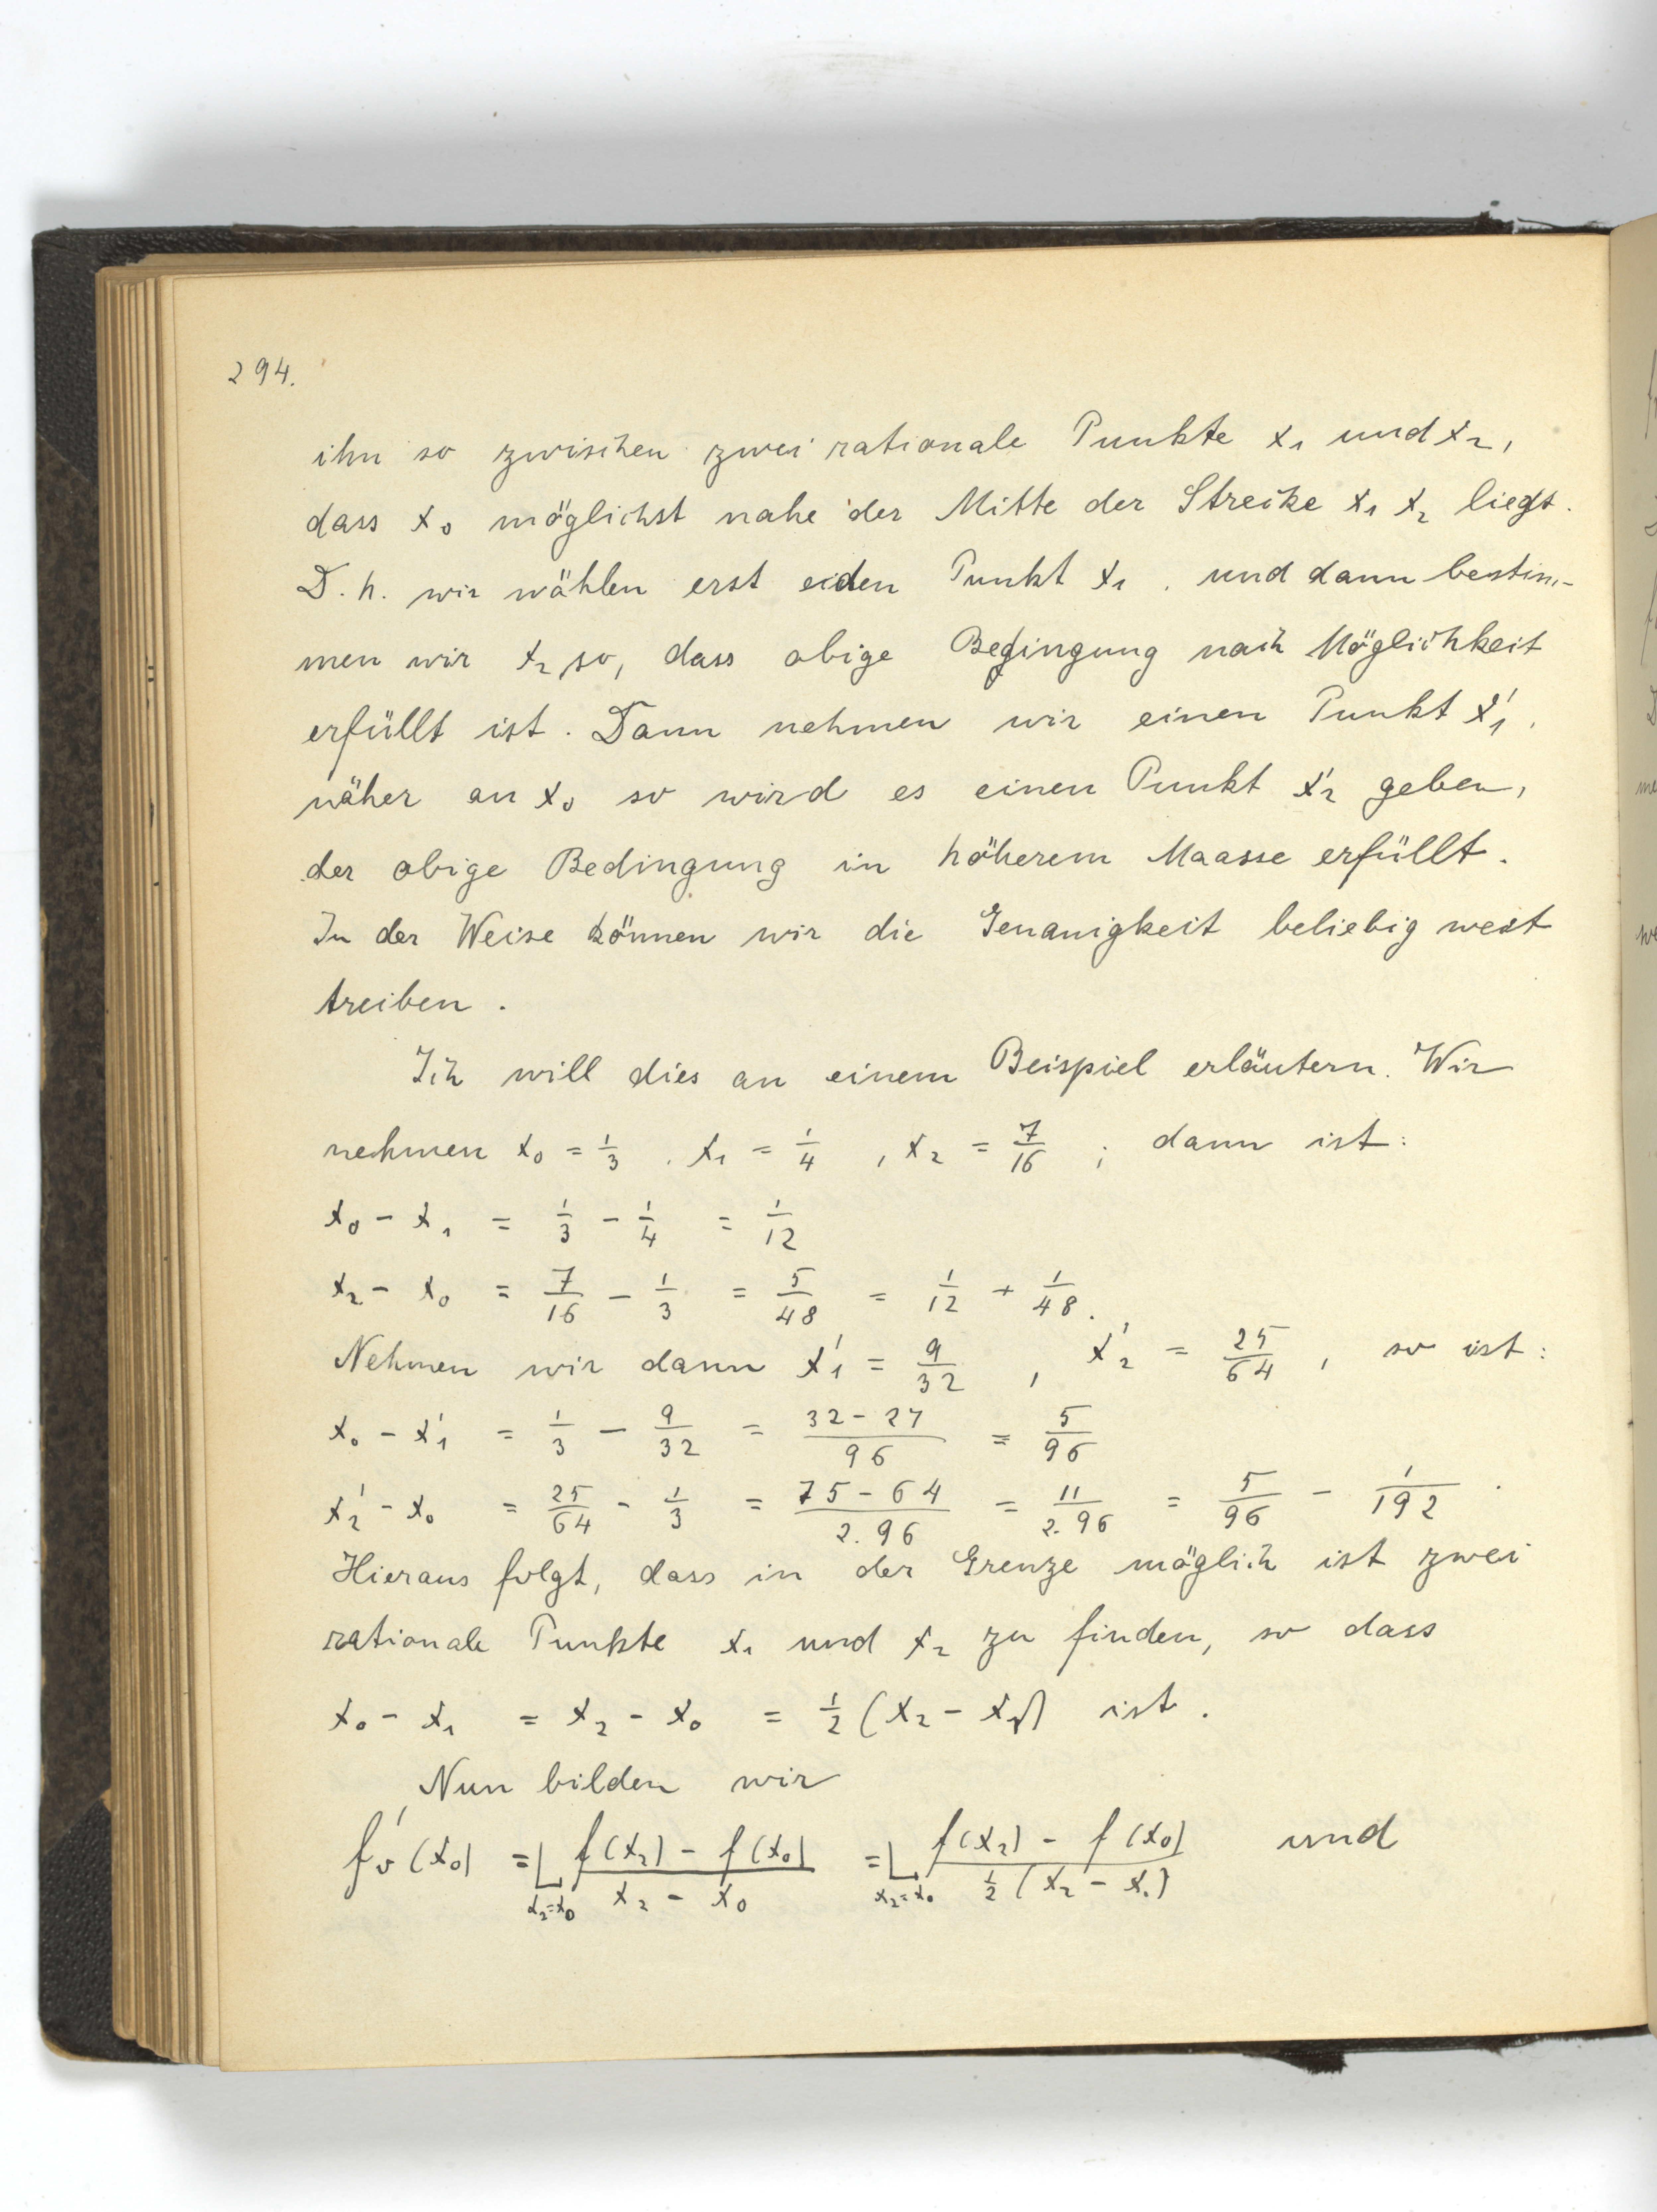 294.
ihn so zwischen zwei rationale Punkte x₁ und x₂,
dass x₀ möglichst nahe der Mitte der Strecke x₁ x₂ liegt.
D. h. wir wählen erst den Punkt x₁, und dann bestim-
men wir x₂ so, dass obige Bedingung nach Möglichkeit
erfüllt ist. Dann nehmen wir einen Punkt x₁′,
näher an x₀ so wird es einen Punkt x₂′ geben,
der obige Bedingung in höherem Maasse erfüllt.
In der Weise können wir die Genauigkeit beliebig weit
treiben.
Ich will dies an einem Beispiel erläutern. Wir
nehmen x₀ = 1/3, x₁ = 1/4, x₂ = 7/16; dann ist:
x₀ - x₁ = 1/3 - 1/4 = 1/12
x₂ - x₀ = 7/16 - 1/3 = 5/48 = 1/12 + 1/48.
Nehmen wir dann x₁′ = 9/32, x₂′ = 25/64, so ist:
x₀ - x₁′ = 1/3 - 9/32 = (32 - 27)/96 = 5/96
x₂′ - x₀ = 25/64 - 1/3 = (75 - 64)/(2.96) = 11/(2.96) = 5/96 - 1/192.
Hieraus folgt, dass in der Grenze möglich ist zwei
rationale Punkte x₁ und x₂ zu finden, so dass
x₀ - x₁ = x₂ - x₀ = 1/2 (x₂ - x₁) ist.
Nun bilden wir
f′v(x₀) = L_{x₂=x₀} (f(x₂) - f(x₀))/(x₂ - x₀) = L_{x₂=x₀} (f(x₂) - f(x₀))/(1/2 (x₂ - x₁)) und